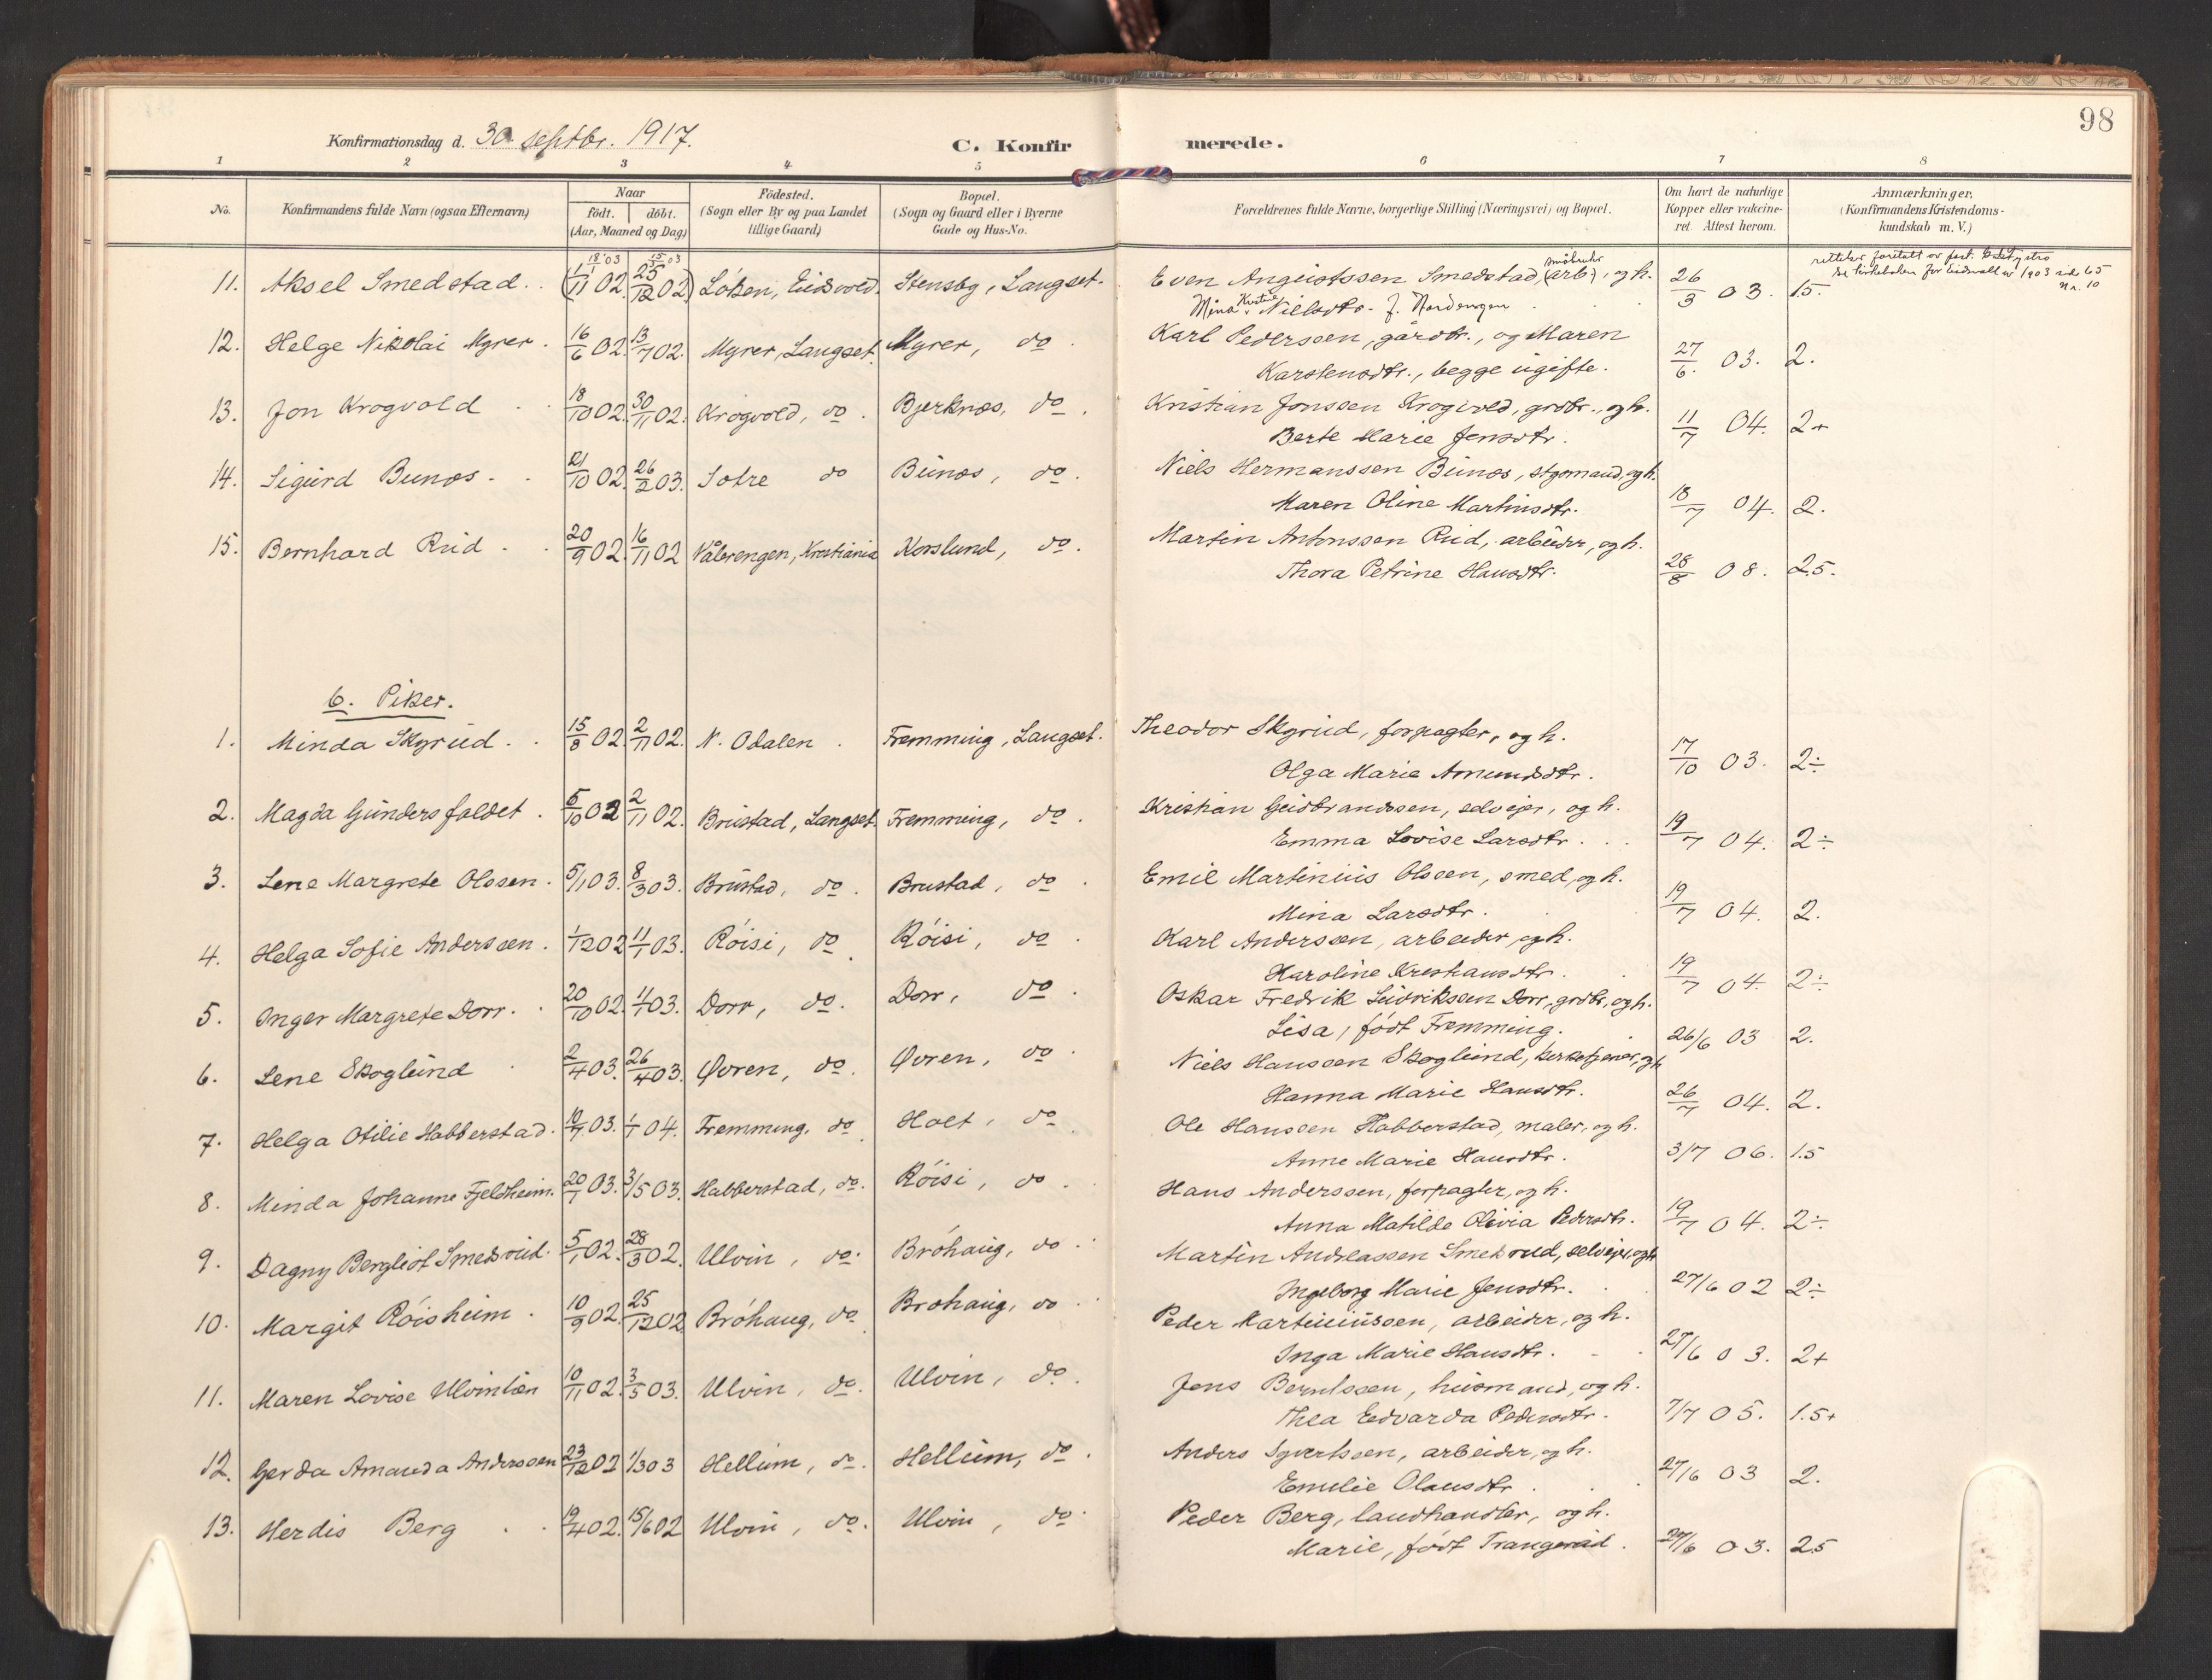 98
Konfirmationsdag d. 30 septbr. 1917.
C. Konfirmerede.
1 2 3 4 5 6 7 8
No.
Konfirmandens fulde Navn (ogsaa Efternavn)
Naar
födt. döbt.
(Aar, Maaned og Dag)
Födested.
(Sogn eller By og paa Landet
tillige Gaard)
Bopæl.
(Sogn og Gaard eller i Byerne
Gade og Hus-No.
Forældrenes fulde Navne, borgerlige Stilling (Næringsvei) og Bopæl.
Om havt de naturlige
Kopper eller vakcine-
ret. Attest herom.
Anmærkninger,
(Konfirmandens Kristendoms-
kundskab m. V.)
18/1 03 15/3 03
11. Aksel Smedstad. (1/11 02. 25/12 02) Løken, Eidsvold. Stensby, Langset. Even Smedstad, (arb), og h. 26/3 03. 1.5.
småbruker
Mina Nielsdtr. f. Nordengen
rettelser foretatt av
se kirkeboken for Eidsvoll 1903 side 65
Nr. 10
12. Helge Nikolai Myrer. 16/6 02. 13/7 02. Myrer, Langset. Myrer, do. Karl Pederssen, gårdbr., og Maren
Karstensdtr., begge ugifte. 27/6. 03. 2.
13. Jon Krogvold 18/10 02. 30/11 02. Krogvold, do. Bjerknæs, do. Kristian Jonssen Krogvold, grdbr., og h.
Berte Marie Jensdtr. 11/7 04. 2+
14. Sigurd Bunæs. 21/10 02. 26/2 03. Sotre do Bunæs, do. Niels Hermanssen Bunæs, og h.
Maren Oline Martinsdtr. 18/7 04. 2.
15. Bernhard Rud. 20/9 02. 16/11 02 Vålerengen, Kristiania Korslund, do. Martin Antonssen Rud, arbeider, og h.
Thora Petrine Hansdtr. 28/8 08. 2.5.
6. Piker.
1. Minda Skyrud. 15/8 02. 2/11 02. N. Odalen. Fremming, Langset. Theodor Skyrud, forpagter, og h.
Olga Marie Amundsdtr. 17/10 03. 2÷
2. Magda Gundersfaldet. 5/10 02 2/11 02. Brustad, Langset. Fremming, do. Kristian Guldbrandssen, selveier, og h.
Emma Lovise Larsdtr. 19/7 04. 2÷
3. Lene Margrete Olssen. 5/1 03. 8/3 03. Brustad, do. Brustad, do. Emil Martinius Olssen, smed, og h.
Mina Larsdtr. 19/7 04. 2.
4. Helga Sofie Anderssen. 1/12 02 11/1 03. Røisi, do. Røisi, do. Karl Anderssen, arbeider, og h.
Karoline Kristiansdtr. 19/7 04. 2÷
5. Inger Margrete Dorr. 20/10 02. 11/1 03. Dorr, do. Dorr, do. Oskar Fredrik Dorr, grdbr, og h.
Lisa, født Fremming. 26/6 03 2.
6. Lene Skoglund 2/4 03. 26/4 03. Øvren, do. Øvren, do. Niels Hanssen Skoglund, kirketjener, og h
Hanna Marie Hansdtr. 26/7 04. 2.
7. Helga Otilie Habberstad. 10/7 03. 1/1 04. Fremming, do Holt, do. Ole Hanssen Habberstad, maler, og h.
Anne Marie Hansdtr. 3/7 06. 1.5
8. Minda Johanne Fjeldheim. 20/1 03. 3/5 03. Habberstad, do. Røisi, do. Hans Anderssen, forpagter, og h.
Anna Matilde Olivia Pedersdtr. 19/7 04. 2÷
9. Dagny Bergliot Smedsrud. 5/1 02. 28/3 02. Ulvin, do. Brøhaug, do. Martin Andreassen Smedsrud, selveier, og h
Ingeborg Marie Jensdtr. 27/6 02 2÷
10. Margit Røisheim. 10/9 02. 25/12 02 Brøhaug, do Brøhaug, do. Peder Martiniussen, arbeider, og h.
Inga Marie Hansdtr. 27/6 03. 2+
11. Maren Lovise Ulvinlien 10/11 02. 3/5 03. Ulvin, do. Ulvin, do. Jens Berntssen, husmand, og h.
Thea Edvarda Pedersdtr. 7/7 05. 1.5+
12. Gerda Amanda Anderssen 23/12 02 1/3 03 Hellum, do. Hellum, do. Anders Syvertssen, arbeider, og h.
Emilie Olausdtr. 27/6 03 2.
13. Herdis Berg 19/4 02. 15/6 02 Ulvin, do. Ulvin, do. Peder Berg, landhandler, og h.
Marie, født Trangsrud. 27/6 03. 2.5